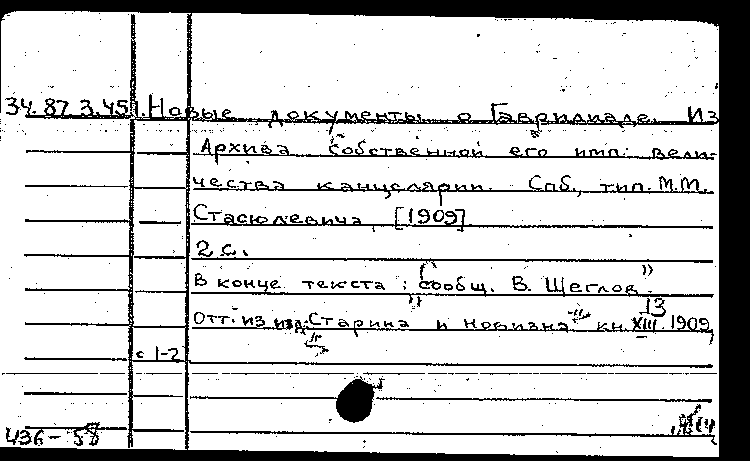 34.87.3.451. Новые документы о Гаврилиаде. Из
Архива собственной его имп. вели-
чества канцелярии. Спб., тип. М.М.
Стасюлевича, [1909]
2 с.
В конце текста: "Сообщ. В. Щеглов"
Отт. из изд.: "Старина и новизна" кн. XIII. 1909,
13
с 1-2
436-58